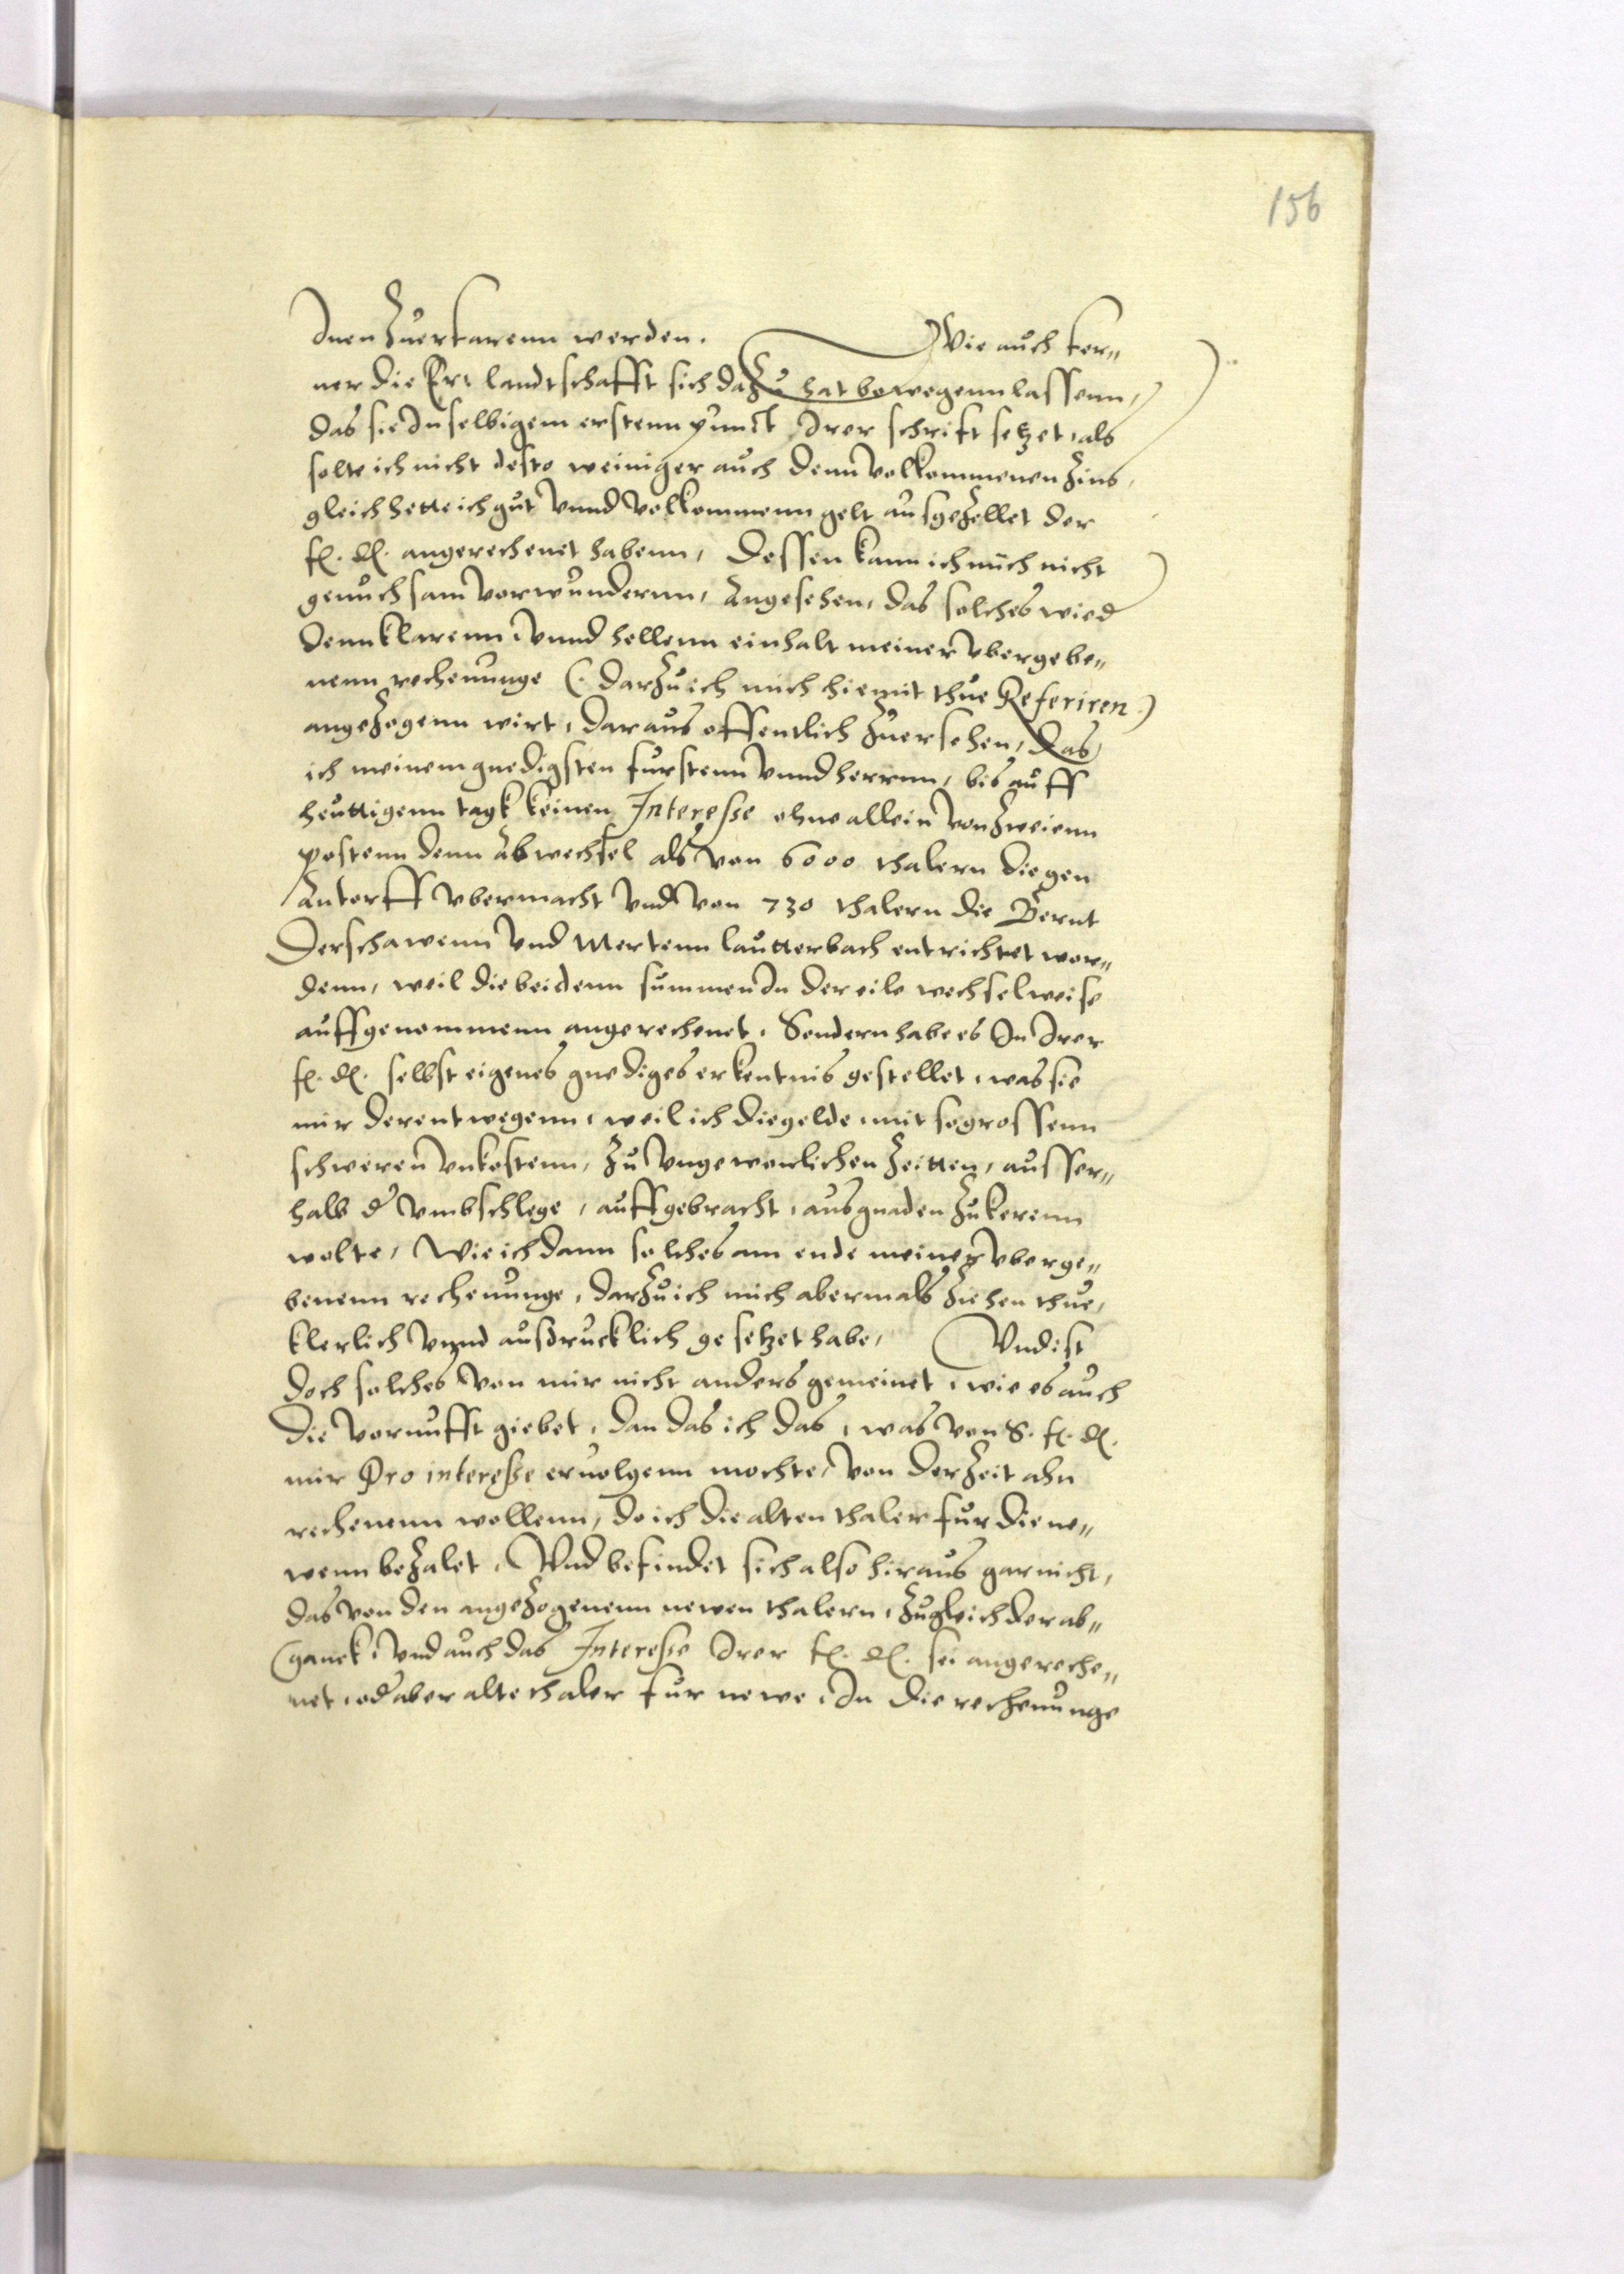 156
Inen Zuerkarenn werden. Wie auch fer„
ner die Er: landtschafft sich daZu hat bewegenn lassenn,
das sie In selbigem erstenn punct Irer schrift setzet, als
solte ich nicht desto weiniger auch denn volkommenen Zins,
gleich hette ich gut vnnd volkommenn gelt ausgeZellet der
f. d. angerechenet habenn, Dessen kann ich mich nicht
genuchsam vorwundernn, Angesehen, das solches wied
denn klarenn, vnnd hellenn einhalt meiner vbergebe„
nenn rechenunge (. darZu ich mich hiemit thue Referiren.)
angeZogenn wirt, daraus offentlich Zuersehen, Das
ich meinem gnedigsten furstenn vnnd herrnn, bis auff
heuttigenn tagk keinen Interesse ohne allein von Zweienn
postenn denn Abwechsel als von 6000 thalern die gen
Antorff vbermacht vnd von 730 thalern die Bernt
Derschawenn vnd Mertenn lautterbach entrichtet wor„
denn, weil die beidenn summen In der eile wechselweise
auffgenommenn angerechenet. Sondern habe es In Irer
f. d. selbst eigenes gnediges erkentnis gestellet, was sie
mir derentwegenn, weil ich die gelde, mit so grossenn
schweren vnkostenn, Zu vngewonlichen Zeitten, ausser„
halb d vmbschlege, auffgebracht, aus gnaden Zukerenn
wolte, Wie ich dann solches am ende meiner vberge„
benenn rechenunge, darZu ich mich abermals Ziehen thue,
klerlich vnnd ausdrucklich gesetzet habe, Vnd ist
doch solches von mir nicht anders gemeinet, wie es auch
die vornufft giebet, dan das ich das, was von S. f. d.
mir Pro interesse eruolgenn mochte, von der Zeit ahn
rechenenn wollenn, do ich die alten thaler fur die ne„
wenn beZalet. Vnd befindet sich also hiraus gar nicht,
das von den angeZogenenn newen thalern, Zugleich der ab„
ganck, vnd auch das Interesse Irer f. d. sei angereche„
net, od aber alte thaler fur newe, In die rechenunge